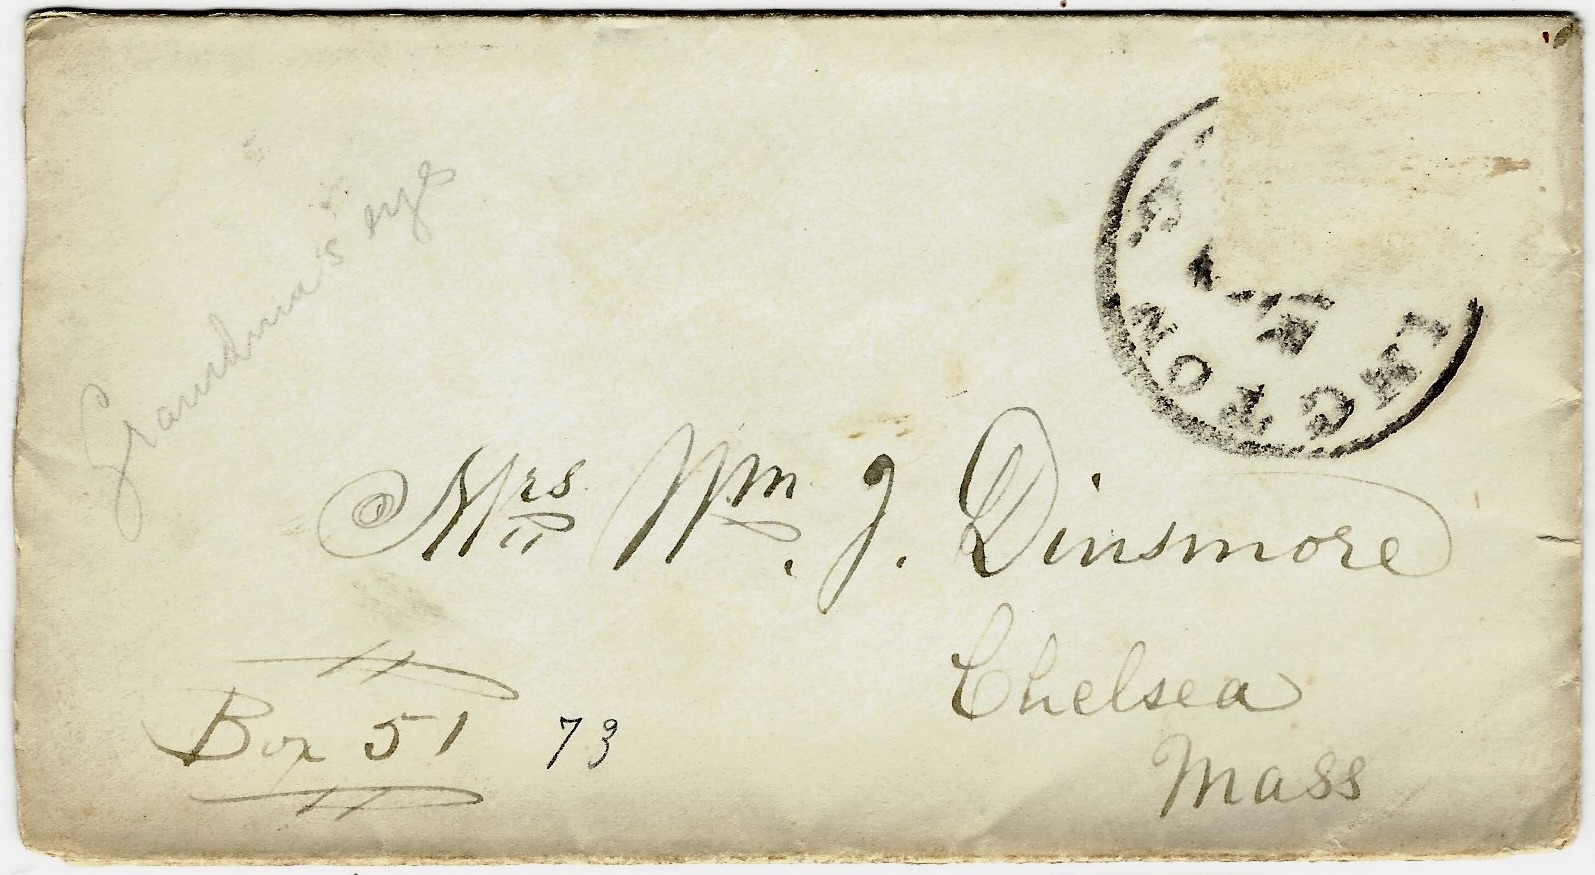 Grandma's
Mrs Wm. J. Dinsmore
Chelsea
Mass
Box 51 73